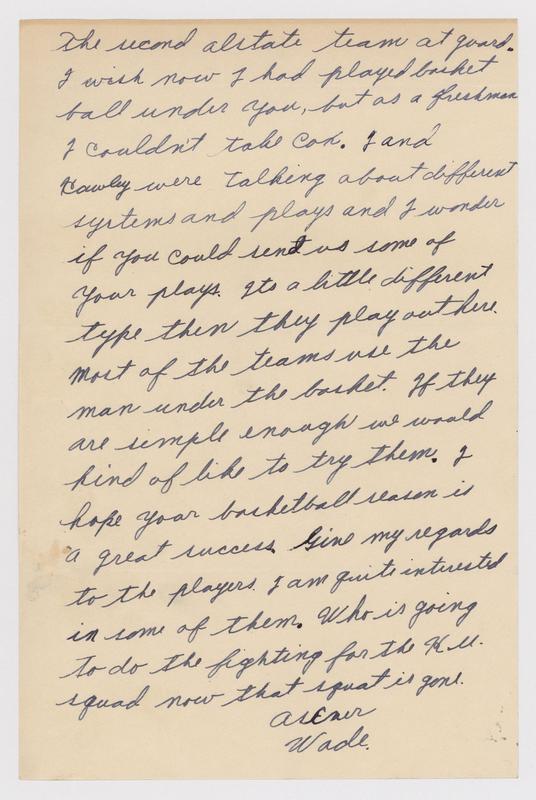 The second alstate team at guard.
I wish now I had played basket
ball under you, but as a freshman
I couldn't take Con. I and
Hawley were talking about different
systems and plays and I wonder
if you could send us some of
your plays. Its a little different
type then they play out here.
Most of the teams use the
man under the basket. If they
are simple enough we would
kind of like to try them. I
hope your basketball season is
a great success. Give my regards
to the players. I am quite interested
in some of them. Who is going
to do the fighting for the K.U.
squad now that squat is gone.
As Ever
Wade.